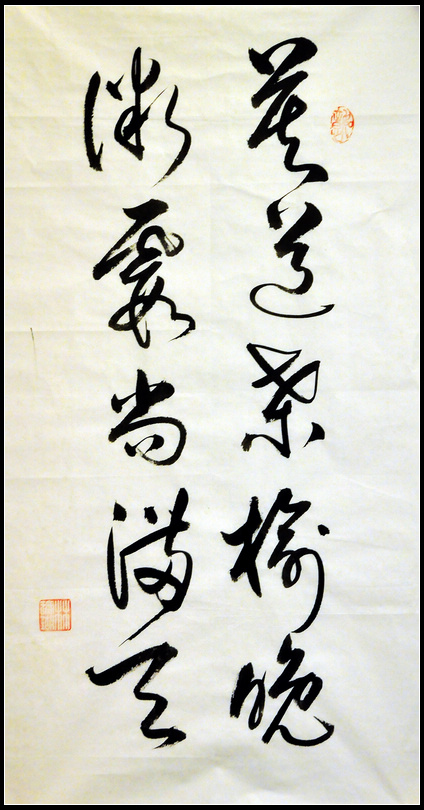 莫道桑榆晚
微霞尚满天